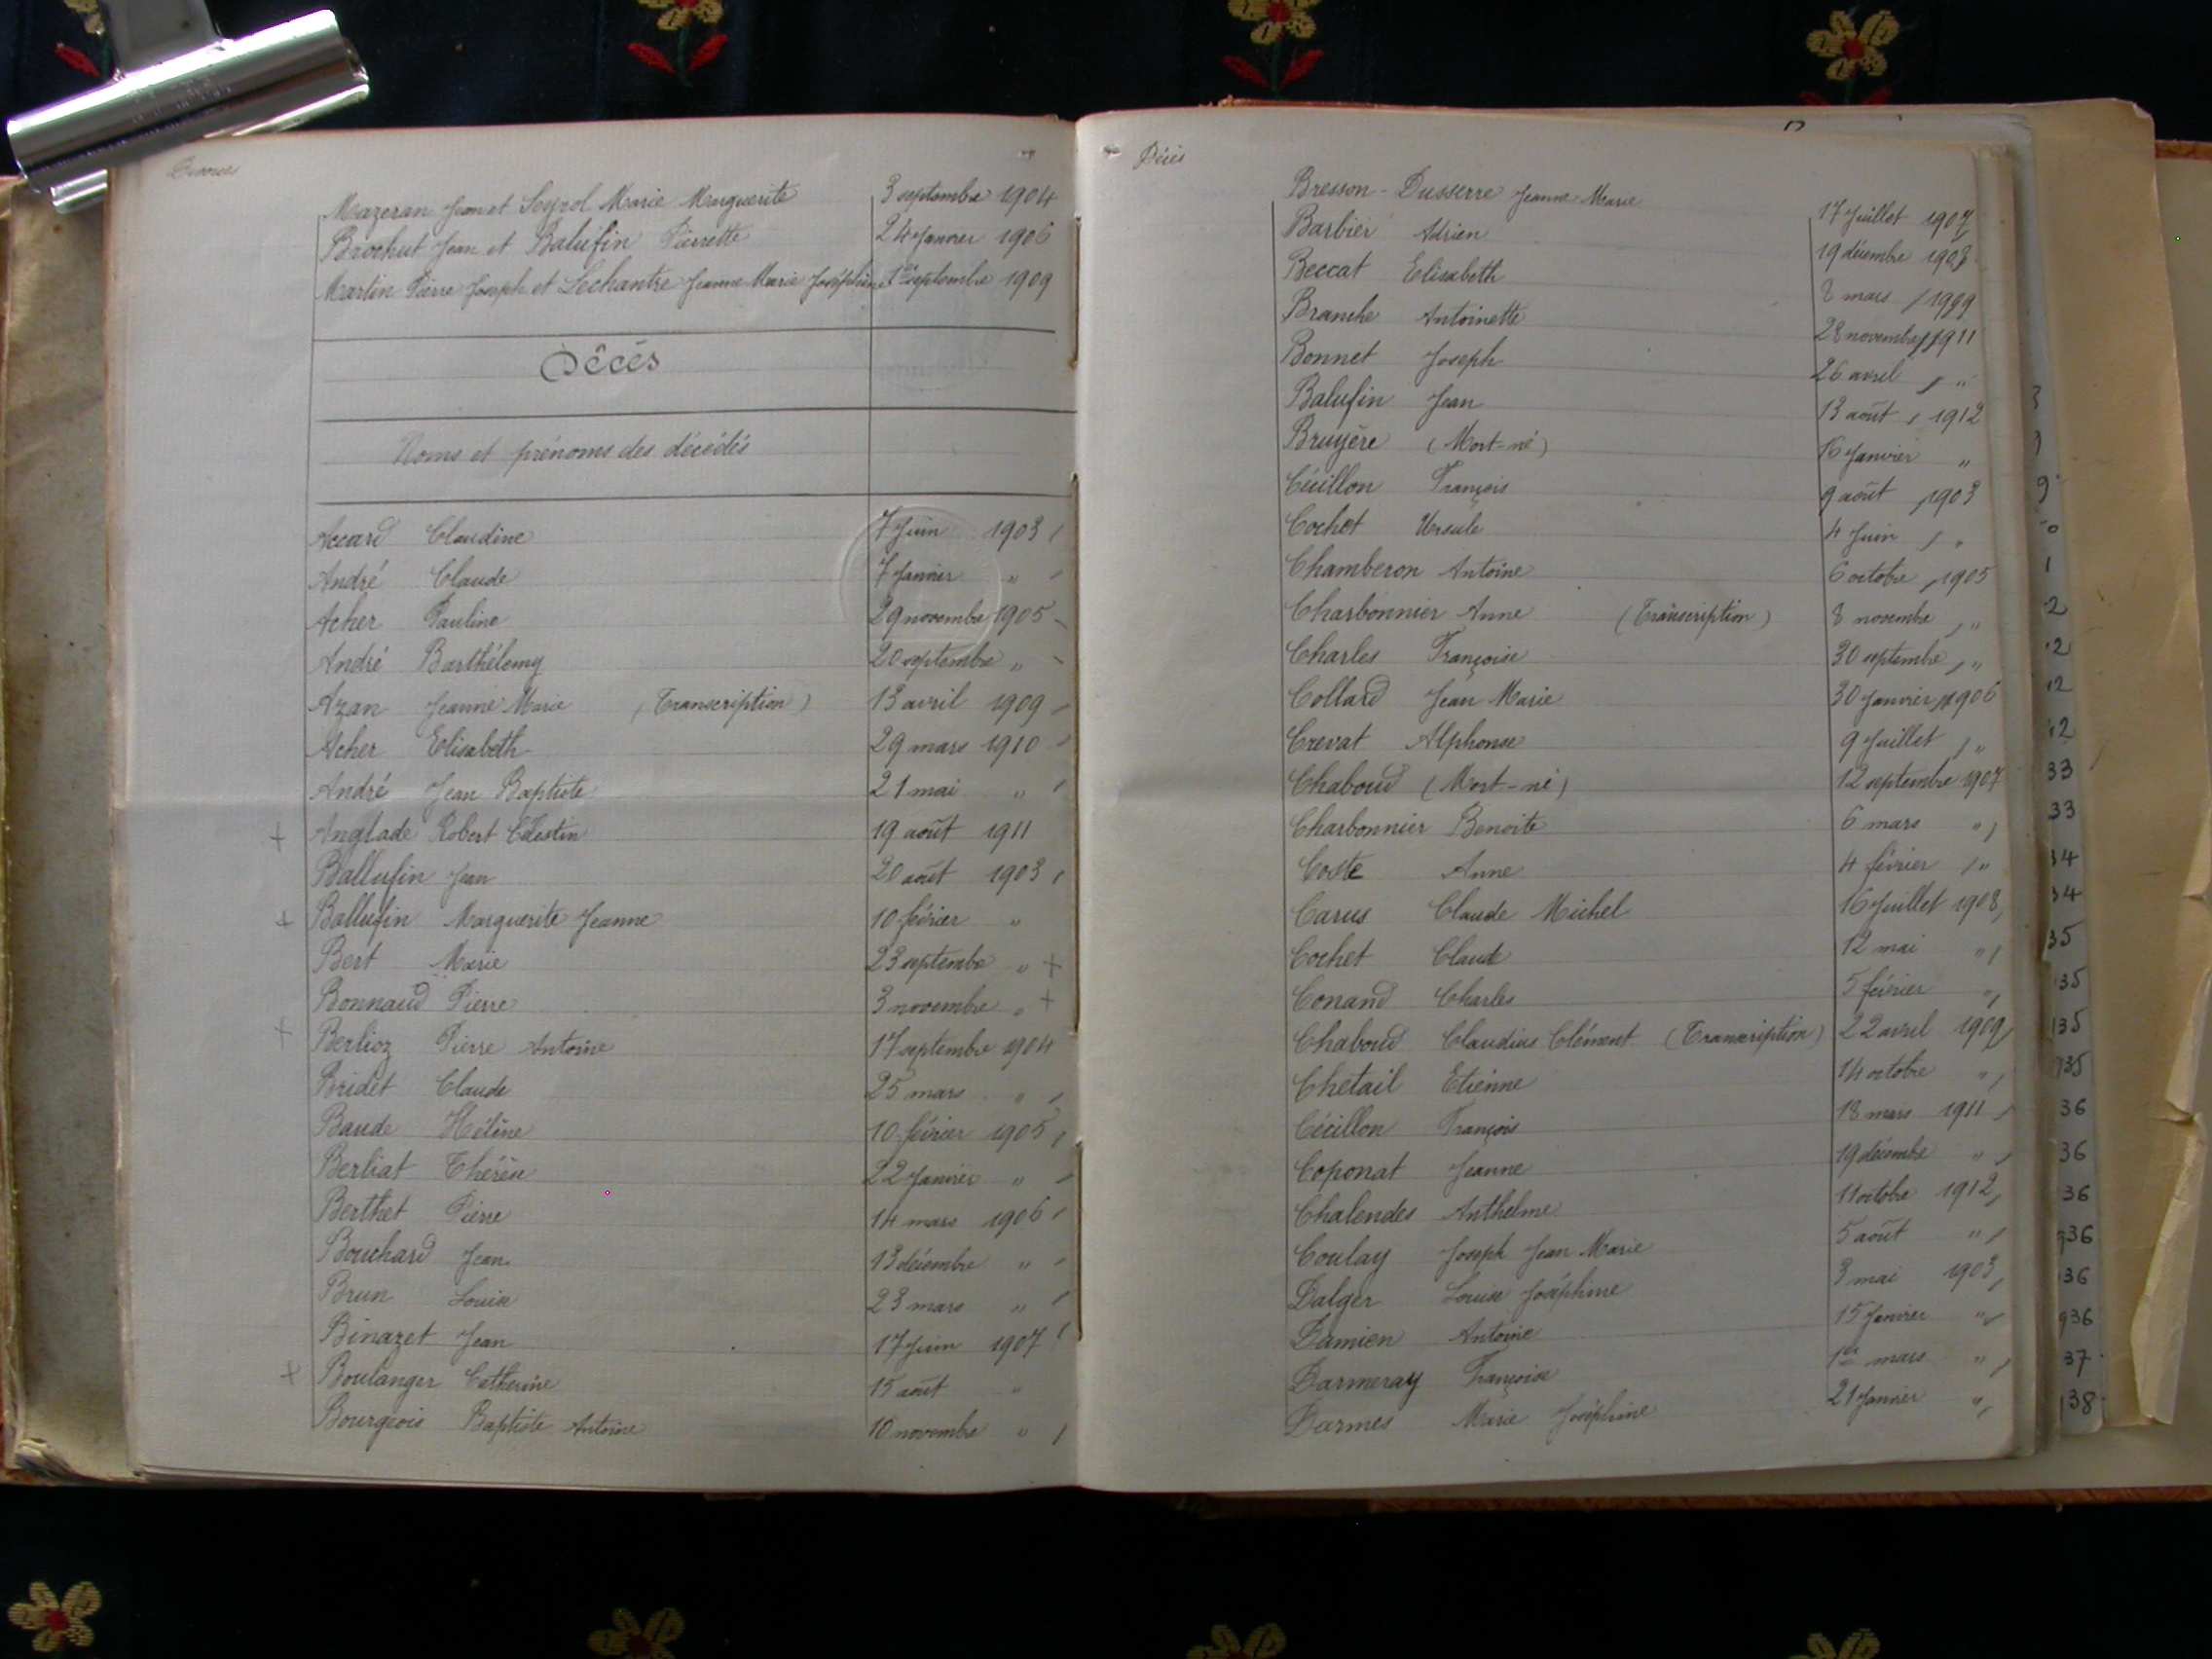 Divorces
Mazeran Jean et Seyrol Marie Marguerite 3 septembre 1904
Brochut Jean et Balufin Pierrette 24 Janvier 1906
Martin Pierre Joseph et Lechantre Jeanne Marie Joséphine 1er septembre 1909
Décès
Noms et prénoms des décédés
Accard Claudine 7 Juin 1903
André Claude 7 Janvier "
Acher Pauline 29 novembre 1905
André Barthélemy 20 septembre "
Azan Jeanne Marie (Transcription) 13 avril 1909
Acher Elisabeth 29 mars 1910
André Jean Baptiste 21 mai "
+ Anglade Robert Célestin 19 août 1911
Ballufin Jean 20 août 1903
+ Ballufin Marguerite Jeanne 10 février "
Bert Marie 23 septembre " +
Bonnaud Pierre 3 novembre " +
+ Berlioz Pierre Antoine 17 septembre 1904
Bridet Claude 25 mars "
Baude Hélène 10 février 1905
Berliat Thérèse 22 Janvier "
Berthet Pierre 14 mars 1906
Bouchard Jean 13 décembre "
Brun Louise 23 mars "
Binazet Jean 17 Juin 1907
+ Boulanger Catherine 15 août "
Bourgeois Baptiste Antoine 10 novembre "
Décès
Bresson-Dusserre Jeanne Marie 17 Juillet 1907
Barbier Adrien 19 décembre
Beccat Elisabeth 8 mars
Branche Antoinette 28 novembre 1911
Bonnet Joseph 26 avril "
Balufin Jean 13 août 1912
Bruyère (Mort-né) 16 Janvier "
Cécillon François 9 août 1903
Cochet Ursule 4 Juin "
Chamberon Antoine 6 octobre 1905
Charbonnier Anne (Transcription) 8 novembre "
Charles Françoise 30 septembre "
Collard Jean Marie 30 Janvier 1906
Crevat Alphonse 9 Juillet "
Chaboud (Mort-né) 12 septembre 1907
Charbonnier Benoite 6 mars "
Coste Anne 4 février "
Carus Claude Michel 16 Juillet 1908
Cochet Claude 12 mai "
Conand Charles 5 février "
Chaboud Claudius Clément (Transcription) 22 avril 1909
Chetail Etienne 14 octobre "
Cécillon François 18 mars 1911
Coponat Jeanne 19 décembre "
Chalendes Anthelme 11 octobre 1912
Coulay Joseph Jean Marie 5 août "
Dalger Louise Joséphine 3 mai 1903
Damien Antoine 15 Janvier "
Darmeray Françoise 1er mars "
Darmes Marie Joséphine 21 Janvier "
3
9
0
1
2
2
2
2
33
33
34
34
35
35
35
35
36
36
36
36
36
36
37
38